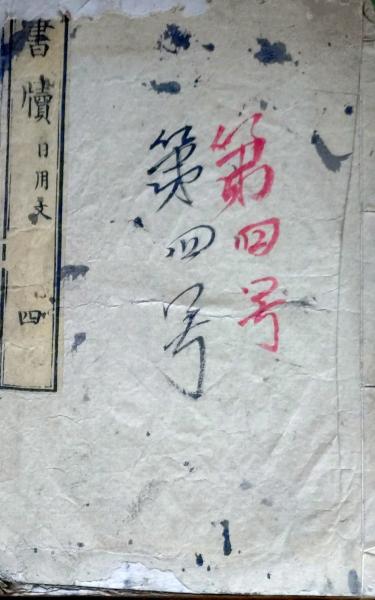 第四号
第四号
書牘 日用文
四